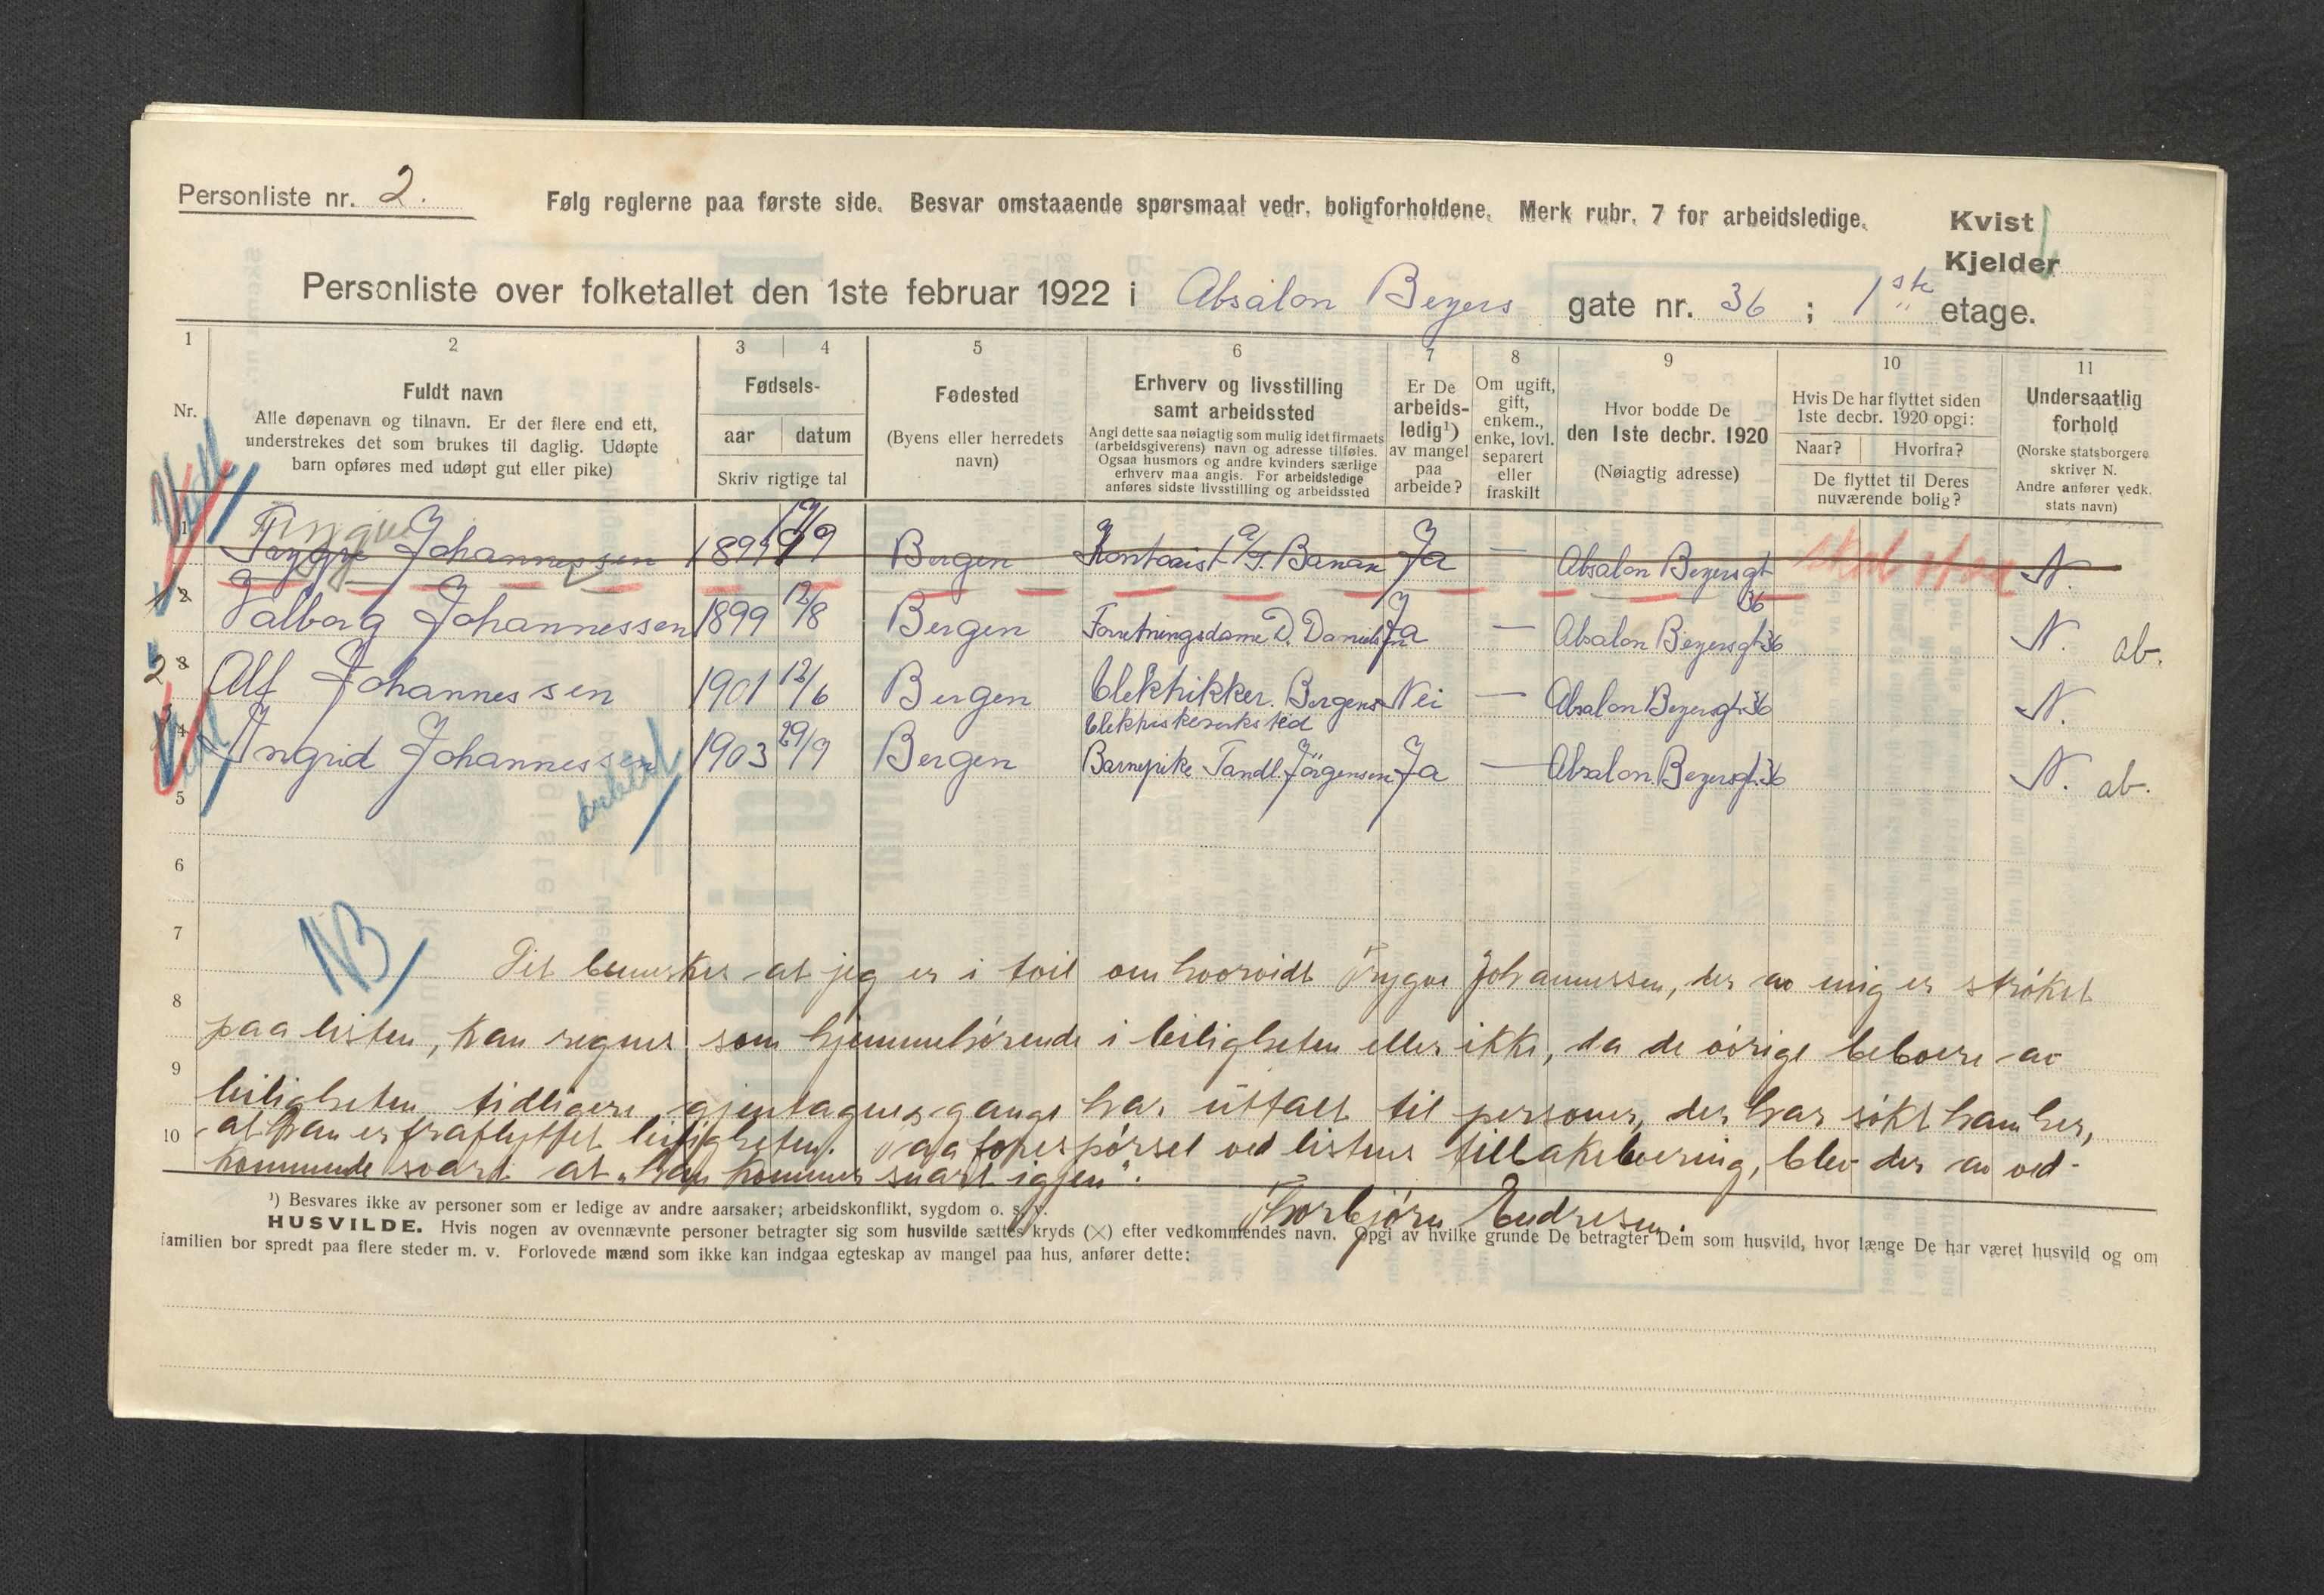 Personliste nr. 2.
Følg reglerne paa første side. Besvar omstaaende spørsmaal vedr. boligforholdene. Merk rubr. 7 for arbeidsledige.
Kvist
Kjelder
Personliste over folketallet den 1ste februar 1922 i Absalon Beyers gate nr. 36 ; 1ste etage.
1 2 3 4 5 6 7 8 9 10 11
Nr.
Fuldt navn
Alle døpenavn og tilnavn. Er der flere end ett,
understrekes det som brukes til daglig. Udøpte
barn opføres med udøpt gut eller pike)
Fødsels-
aar datum
Skriv rigtige tal
Fødested
(Byens eller herredets
navn)
Erhverv og livsstilling
samt arbeidssted
Angi dette saa nøiagtig som mulig idet firmaets
(arbeidsgiverens) navn og adresse tilføies.
Ogsaa husmors og andre kvinders særlige
erhverv maa angis. For arbeidsledige
anføres sidste livsstilling og arbeidssted
Er De
arbeids-
ledig¹)
av mangel
paa
arbeide?
Om ugift,
gift,
enkem.,
enke, lovl.
separert
eller
fraskilt
Hvor bodde De
den 1ste decbr. 1920
(Nøiagtig adresse)
Hvis De har flyttet siden
1ste decbr. 1920 opgi:
Naar? Hvorfra?
De flyttet til Deres
nuværende bolig?
Undersaatlig
forhold
(Norske statsborgere
skriver N.
Andre anfører vedk.
stats navn)
Trygve
1 Trygve Johannessen 1899 Bergen Kontorist A/S. Banan Ja — Absalon Beyersgt 36 N.
2 Valborg Johannessen 1899 12/8 Bergen Forretningsdame D. Danielsen Ja — Absalon Beyersgt 36 N. ab.
2 3 Alf Johannessen 1901 12/6 Bergen Elektrikker. Bergens Nei — Absalon Beyersgt 36 N.
Elektriskeverksted
4 Ingrid Johannessen 1903 29/9 Bergen Barnepike Tandl. Jörgensen Ja — Absalon Beyersgt 36 N. ab.
5
6
7
NB
Det bemerkes at jeg er i tvil om hvorvidt Trygve Johannessen, der av mig er strøket
8
paa listen, kan regnes som hjemmehørende i leiligheten eller ikke, da de øvrige beboere av
9
leiligheten tidligere gjentagnes gange har uttalt til personer, der har søkt ham her,
10 at han er fraflyttet leiligheten. Paa forespørsel ved listens tilbakelevering, blev der av ved-
kommende svart at "han kommer snart igjen".
Thorbjørn Endresen.
¹) Besvares ikke av personer som er ledige av andre aarsaker; arbeidskonflikt, sygdom o. s. v.
HUSVILDE. Hvis nogen av ovennævnte personer betragter sig som husvilde sættes kryds (×) efter vedkommendes navn. Opgi av hvilke grunde De betragter Dem som husvild, hvor længe De har været husvild og om
familien bor spredt paa flere steder m. v. Forlovede mænd som ikke kan indgaa egteskap av mangel paa hus, anfører dette: